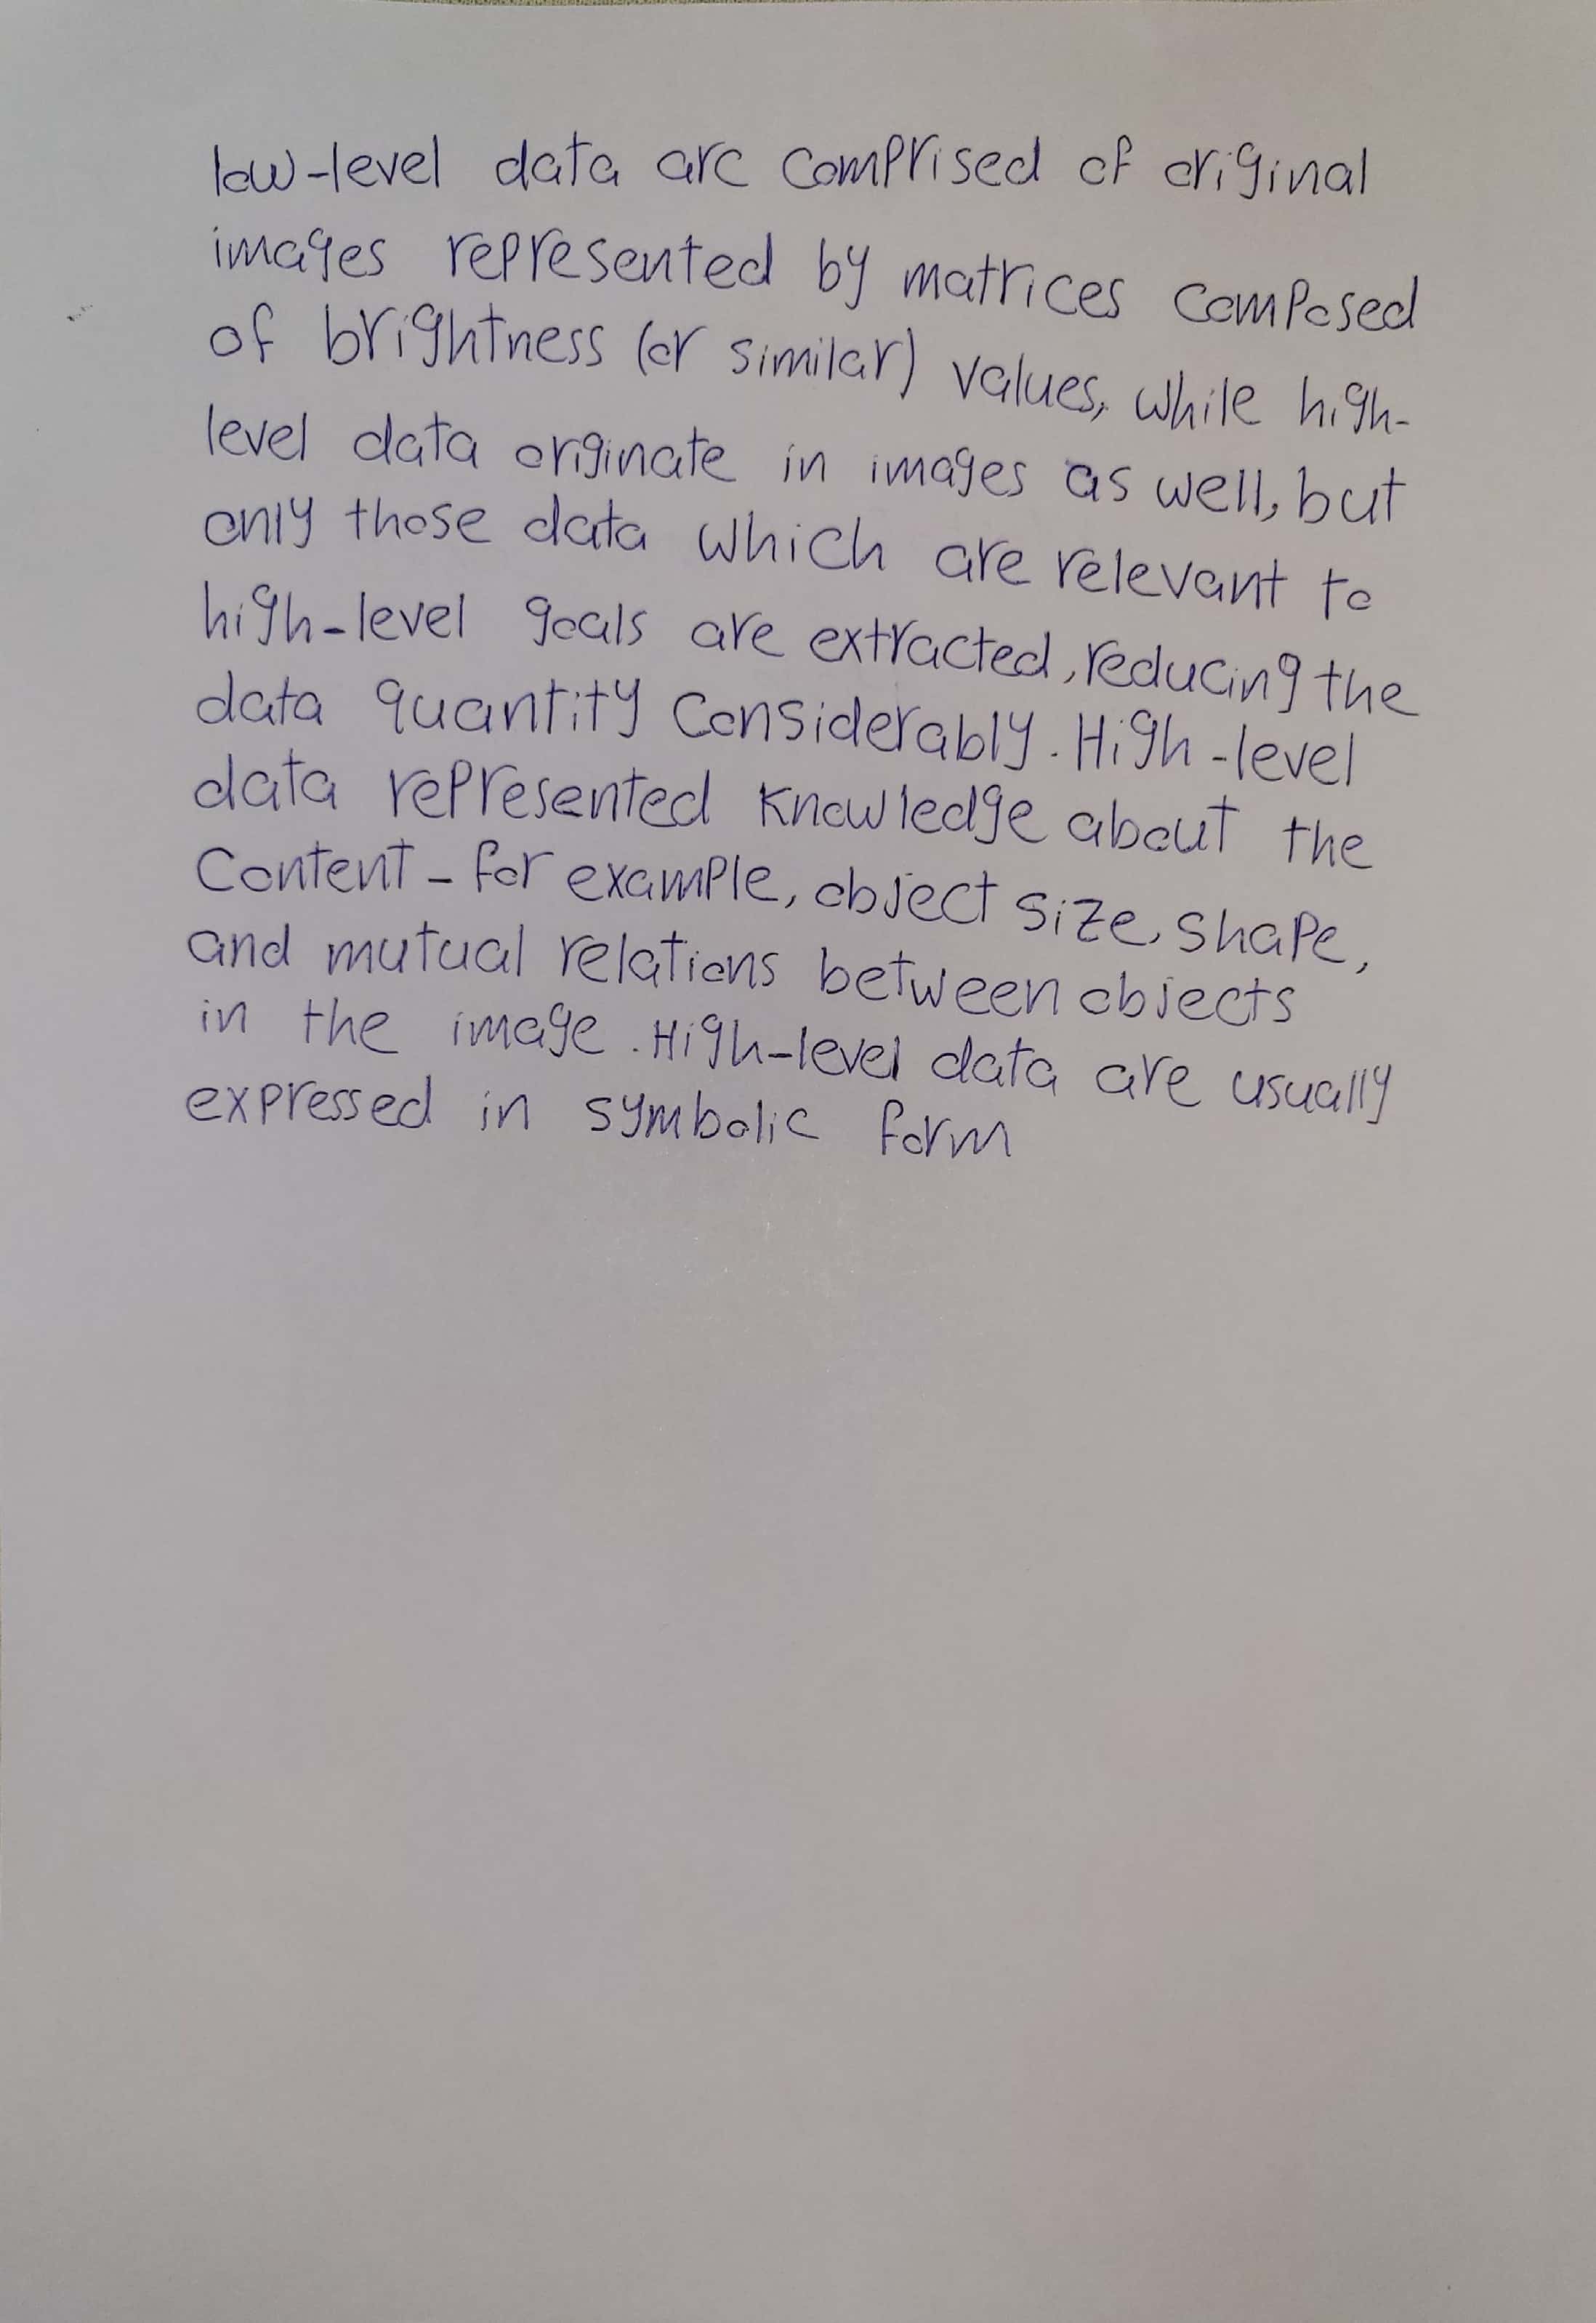 low-level data are comprised of original
images represented by matrices composed
of brightness (or similar) values, while high-
level data originate in images as well, but
only those data which are relevant to
high-level goals are extracted, reducing the
data quantity considerably. High-level
data represented knowledge about the
Content - for example, object size, shape,
and mutual relations between objects
in the image. High-level data are usually
expressed in symbolic form